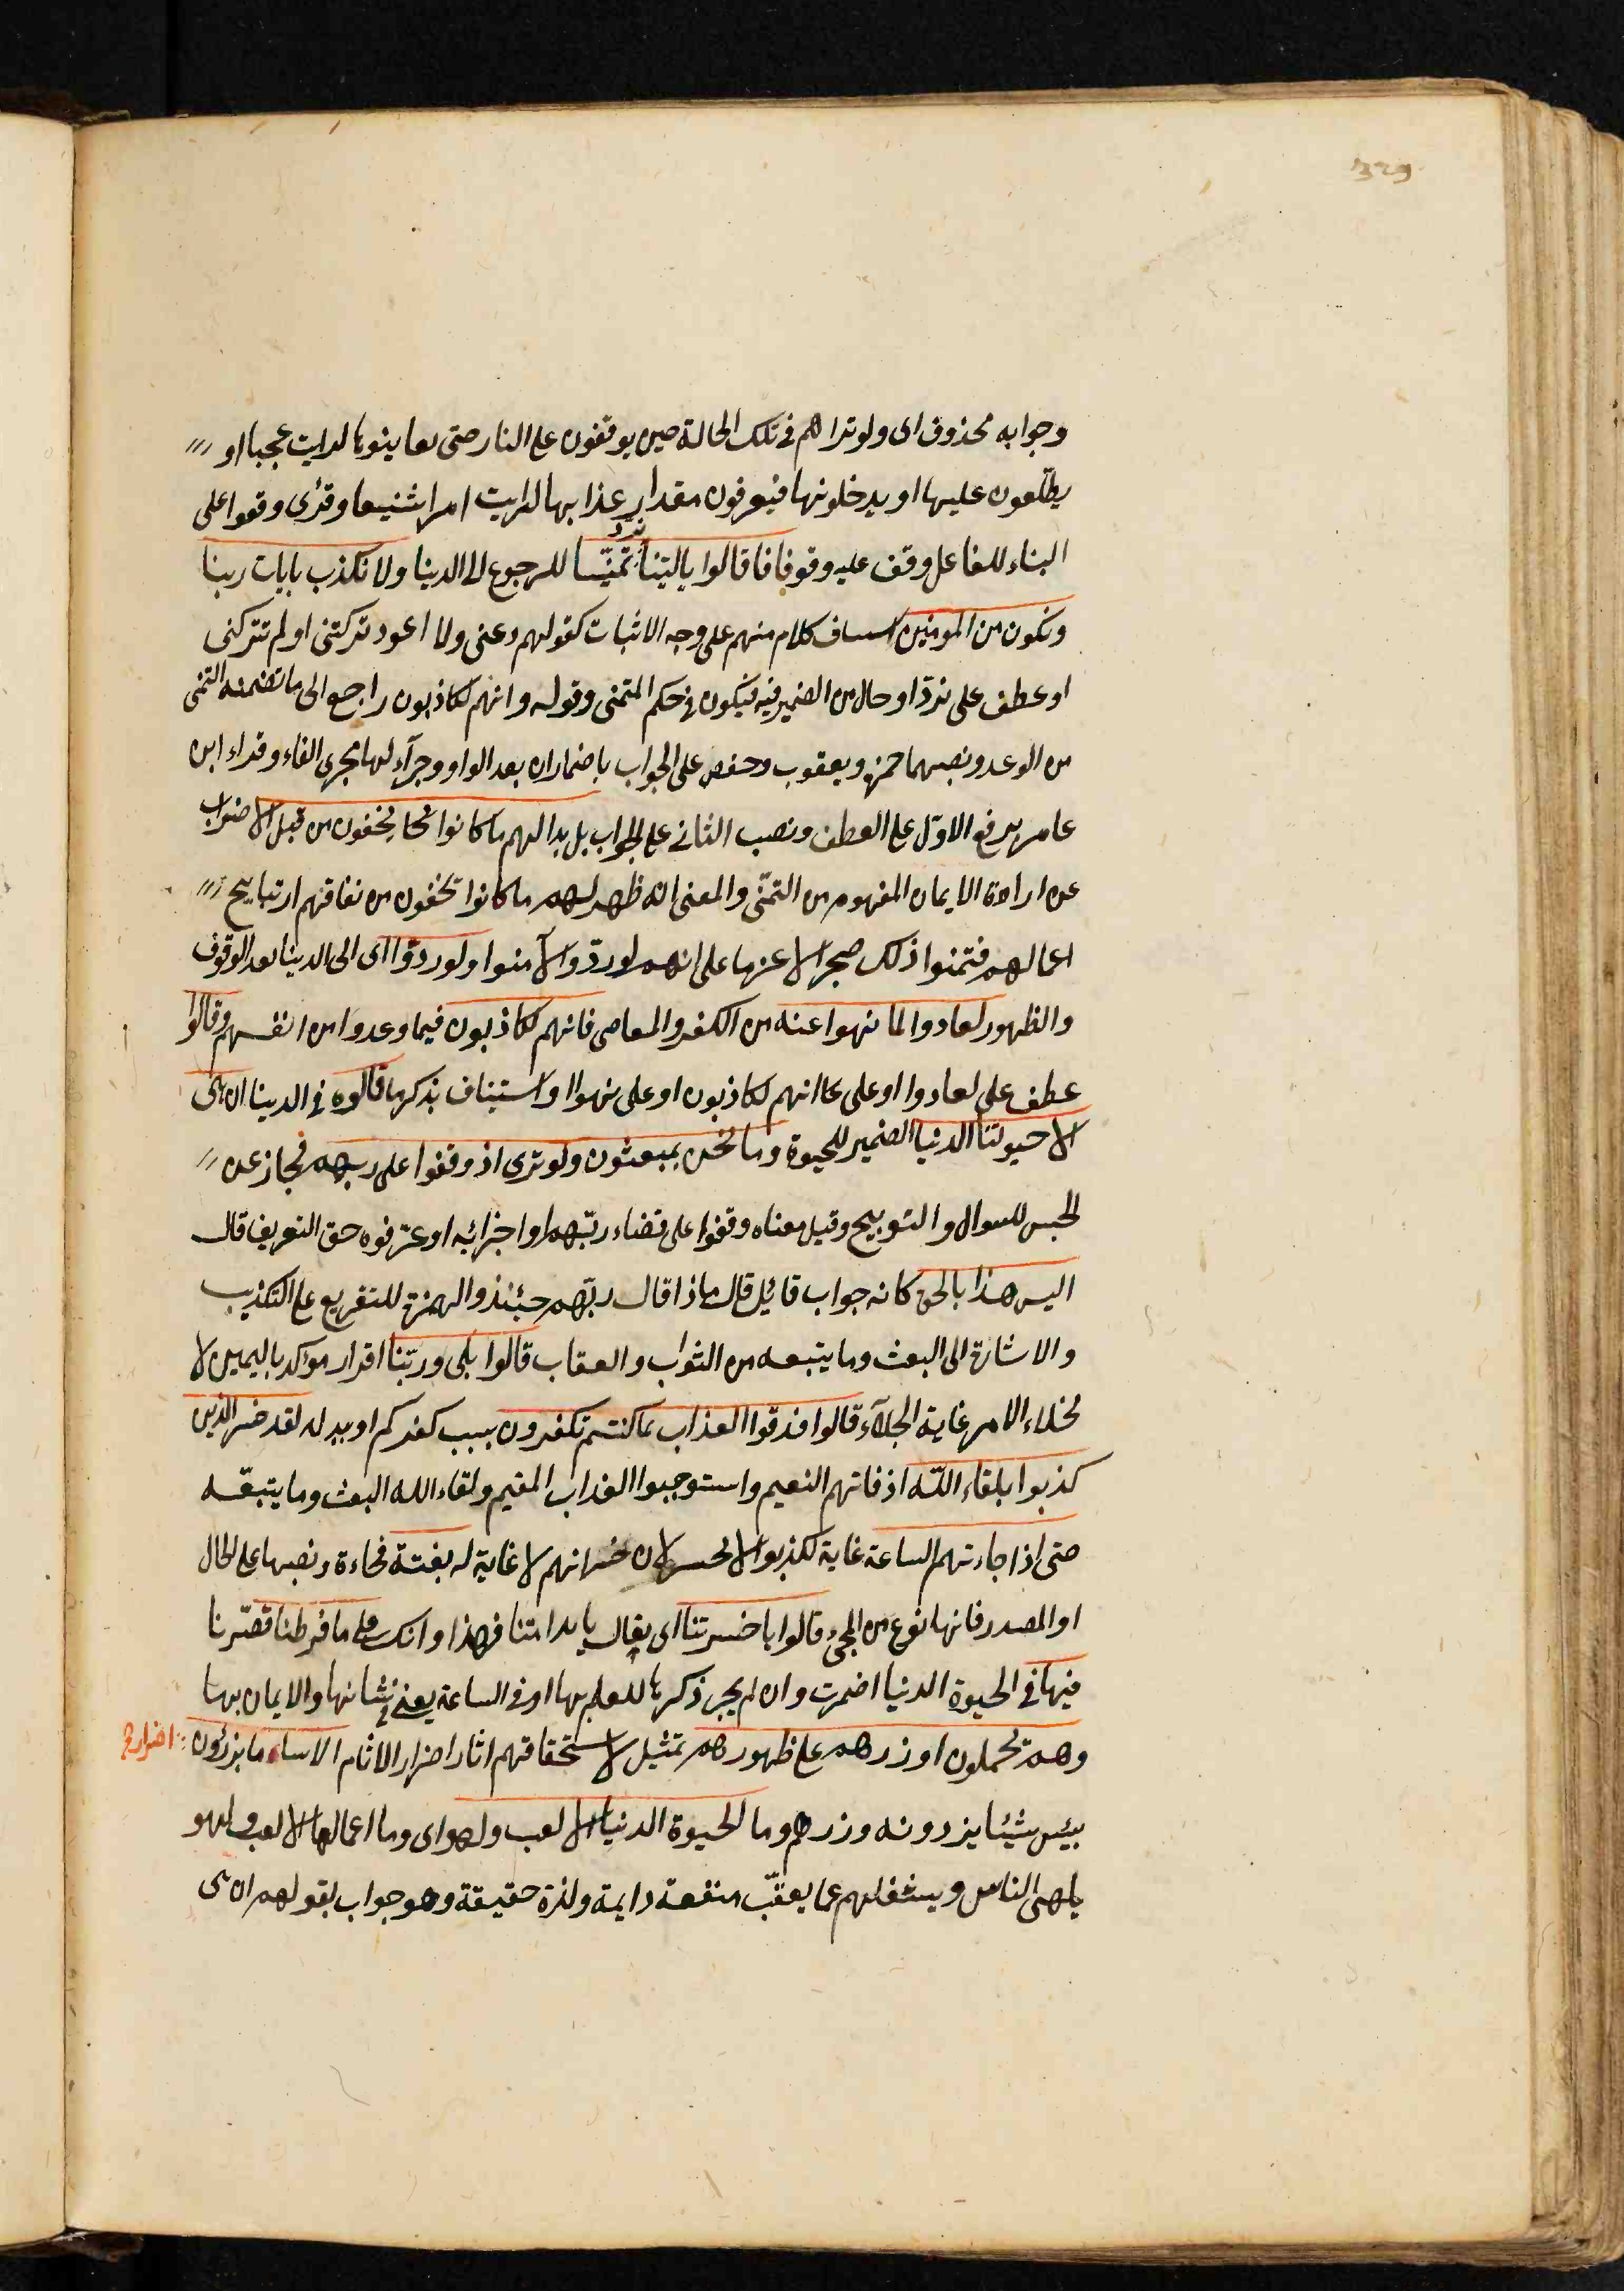 329
وجوابه محذوف اى ولو تراهم فى تلك الحالة حين يوقفون على النار حتى يعاينوها لرايت عجبا او
يطلّعون عليها او يدخلونها فيعرفون مقدار عذابها لرايت امرا شنيعا وقرئ وقفوا على
البناء للفاعل وقف عليه وقوفا فقالوا ياليتنا نردّ تمنّيا للرجوع الى الدنيا ولا نكذب بايات ربنا
ونكون من المومنين كلام منهم على وجه الاثبات كقولهم دعنى ولا اعود تركتنى او لم تتركنى
او عطف على نردّ او حال من الضمير فيه فيكون فى حكم المتمنى وقوله وانهم لكاذبون راجع الى ما تضمنه التمنى
من الوعد ونصبهما حمزة ويعقوب وحفص على الجواب باضمار ان بعد الواو وجرآء لها مجرى الفاء وقراء ابن
عامر برفع الاوّل على العطف ونصب الثانى على الجواب بل بدا لهم ما كانوا يخفون من قبل الاضراب
عن ارادة الايمان المفهوم من التمنّى والمعنى انه ظهر لهم ما كانوا يخفون من نفاقهم ارتبايح
اعمالهم فتمنوا ذلك ضجرا لا عزما على انهم لو ردّوا لآمنوا ولو ردّوا اى الى الدنيا بعد الوقوف
والظهور لعادوا لما نهوا عنه من الكفر والمعاصى فانهم لكاذبون فيما وعدوا من انفسهم وقالوا
عطف على لعادوا او على انهم لكاذبون او على نهوا او استيناف بذكر ما قالوه فى الدنيا ان هى
الا حيوتنا الدنيا الضمير للحيوة وما نحن بمبعوثون ولو ترى اذ وقفوا على ربهم مجاز عن
الحبس للسوال والتوبيح وقيل معناه وقفوا على قضاء ربّهم او اجزائه او عرّفوه حق التعريف قال
اليس هذا بالحق كانه جواب قائل قال ماذا قال ربّهم حينئذ والهمزة للتقريع على التكذيب
والاشارة الى البعث وما يتبعه من الثواب والعقاب قالوا بلى وربّنا اقرار موكد باليمين لا
نخلاء الامر غاية الجلآء قالوا فذقوا العذاب بما كنتم تكفرون بسبب كفركم او ببدله لقد خسر الذين
كذبوا بلقاء اللّه اذ فاتهم النعيم واستوجبوا العذاب المقيم ولقاء الله البعث وما يتبعه
حتى اذا جاءتهم الساعة غاية لكذبوا لا لخسر لان خسرانهم لا غاية له بغتة فجاءة ونصبها على الحال
او المصدر فانها نوع من المجئ قالوا ياحسرتنا اى يقال ياندامتنا فهذا وانك على ما فرطنا قصّرنا
فيها فى الحيوة الدنيا اضمرت وان لم يجر ذكرها للعلم بها او فى الساعة يعنى فى شانها والايمان بها
وهم يحملون اوزرهم على ظهورهم تمثيل لاستحقاقهم اثار اضرار الاثام الا ساء ما يزرئون
بئس شيئا يزرونه وزرهم وما الحيوة الدنيا الا لعب ولهو اى وما اعمالها الا لعب ولهو
يلهى الناس ويشغلهم عما يعقّب منفعة دايمة ولذة حقيقة وهو جواب لقولهم ان هى